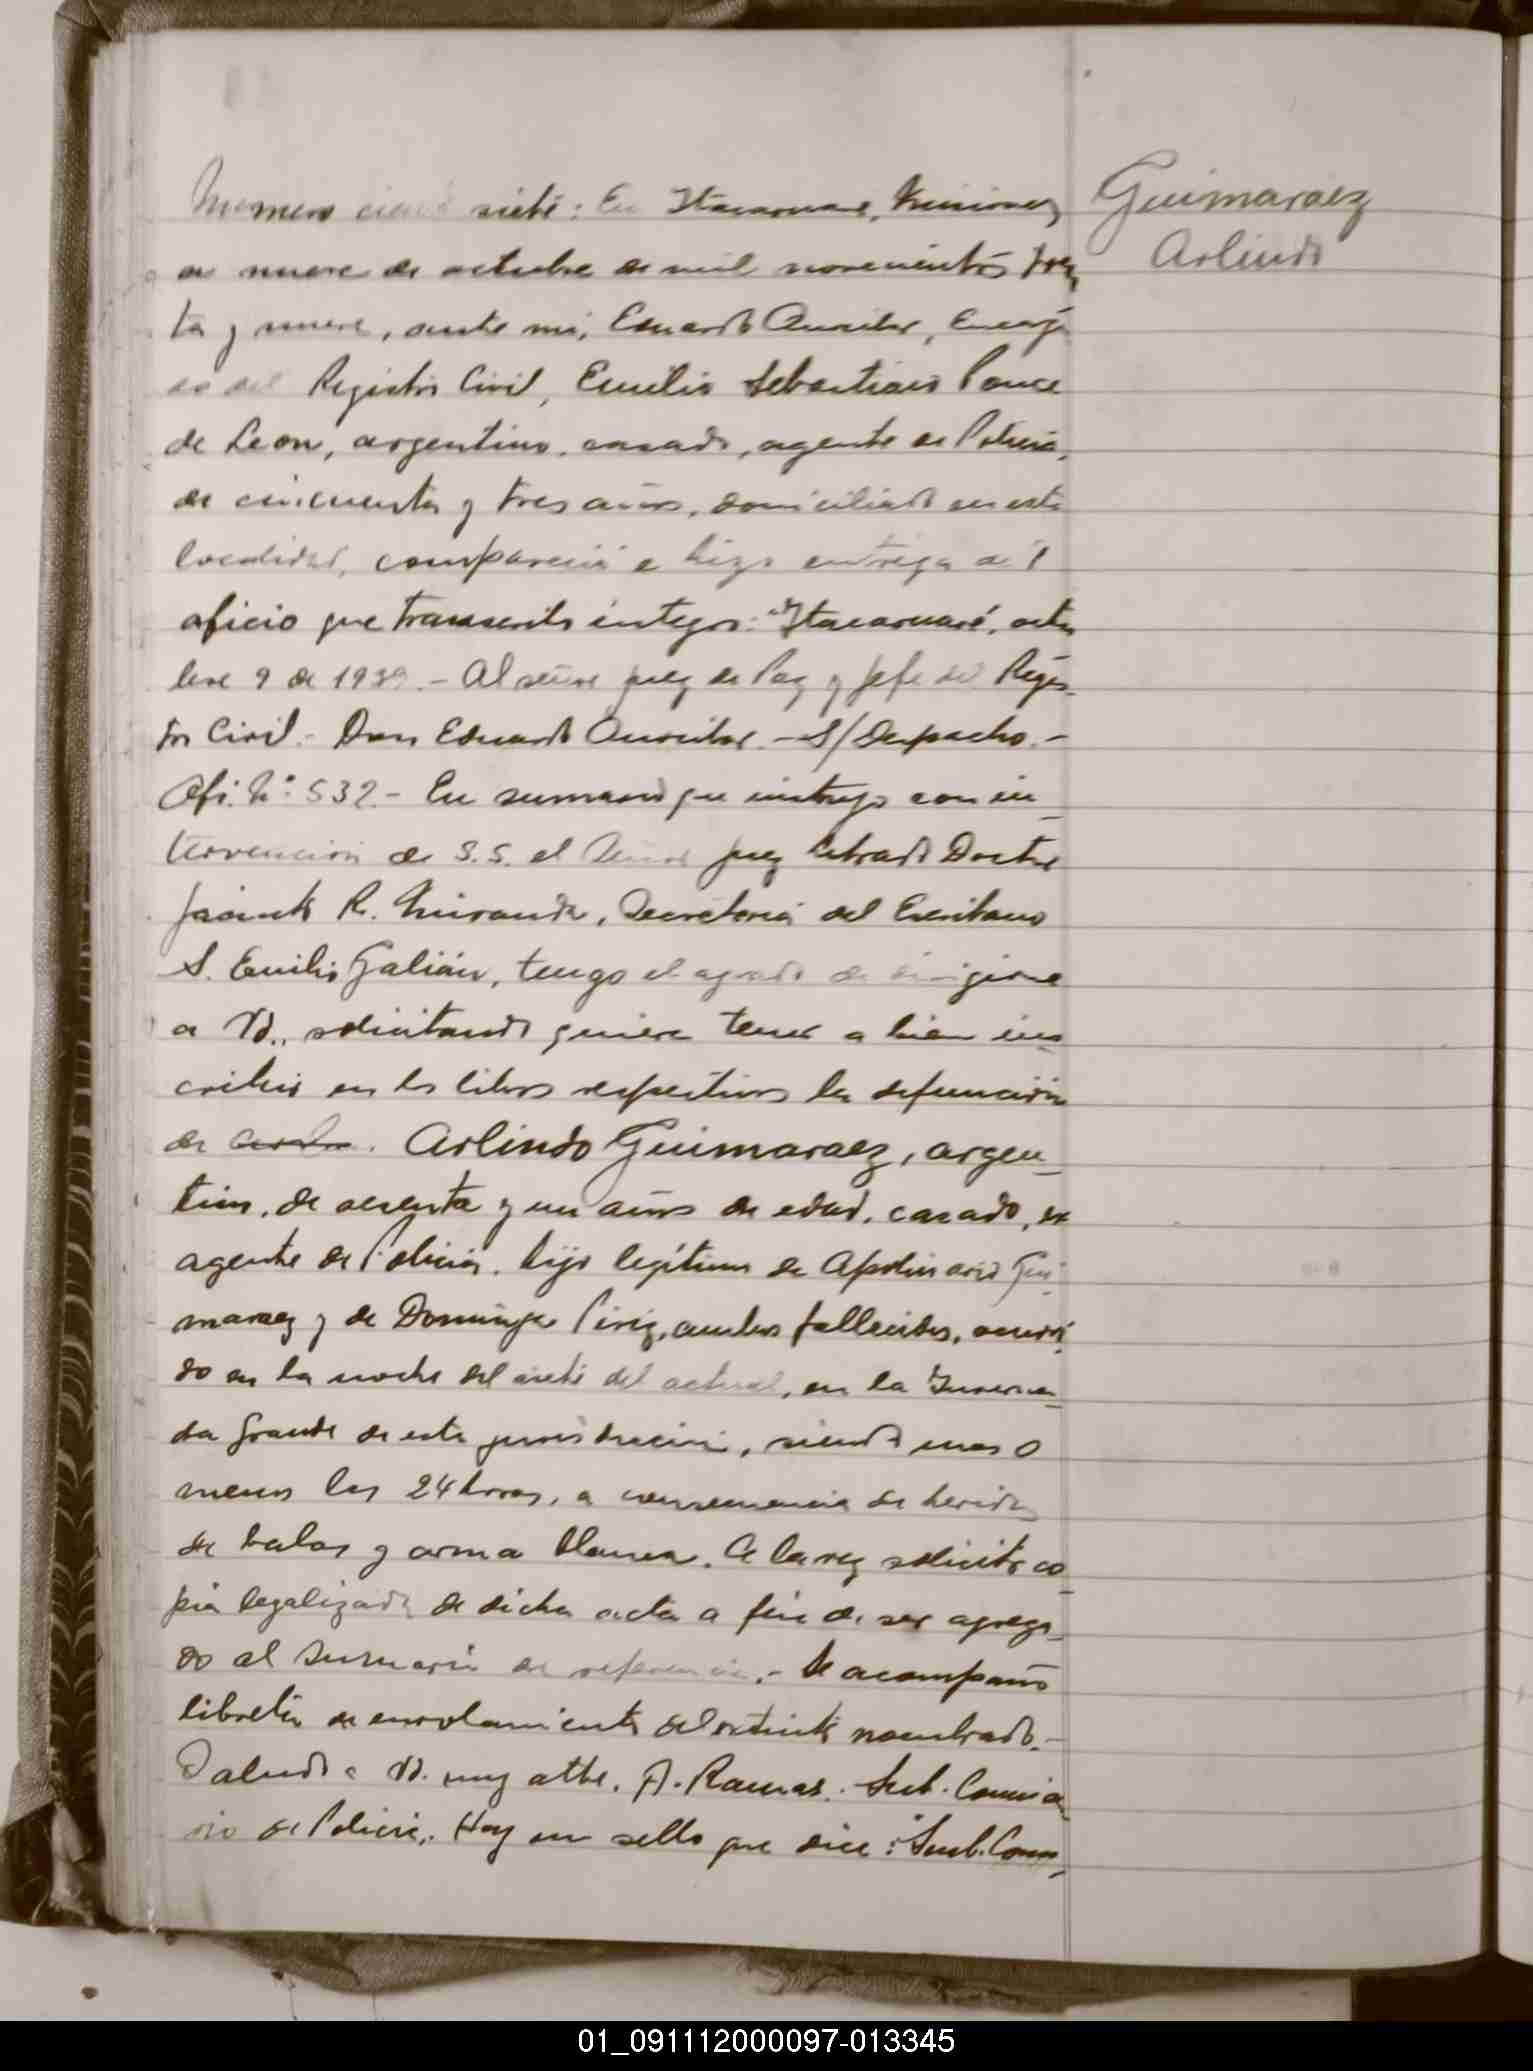 Guimaraez
Arlindo
Numero ciento siete: En Itacaruaré, Misiones
a nueve de octubre de mil novecientos trein
ta y nueve, ante mi, Eduardo, Encarga
do del Registro Civil, Emilio Sebastiano Ponce
de Leon, argentino, casado, agente de Policia,
de cincuenta y tres años, domiciliado en esta
localidad, compareció e hizo entrega del
oficio que transcribo integro: "Itacaruaré, octu
bre 9 de 1939.- Al señor Juez de Paz y Jefe del Regis-
tro Civil.- Don Eduardo - S/Despacho.-
Ofi. N°: 532.- En sumario que instruyo con in_
tervencion de S.S. el Señor Juez Letrado Doctor
Jacinto R. Miranda, Secretaria del Escribano
S. Emilio Galián, tengo el agrado de dirigirme
a Vd., solicitando quiera tener a bien ins_
cribir en los libros respectivos la defunción
de Arlindo Guimaraez, argen_
tino, de sesenta y un años de edad, casado, ex
agente de Policia, hijo legítimo de Apolinario Gui_
maraez y de Dominga Piriz, ambos fallecidos, ocurri_
do en la noche del siete del actual, en la Inverna_
da Grande de esta jurisdiccion, siendo mas o
menos las 24 horas, a consecuencia de heridas
de balas y arma blanca. A la vez solicito co_
pia legalizada de dicha acta a fin de ser agrega_
do al sumario de referencia.- Se acompaña
libreta de enrolamiento del extinto nombrado.-
Saludo a Vd. muy atte. A. Ramos. Sub. Comisa
rio de Policia. Hay un sello que dice: "Sub. Comi_
01_091112000097-013345